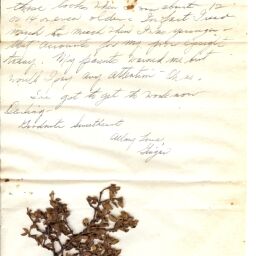 those looks when I was about 12
or 14 or even older - In fact I used
much to much when I was younger -
that accounts for my
today. My parents warned me but
would I pay any attention -
I've got to get to work now
Darling -
Goodnite Sweetheart
All my Love,